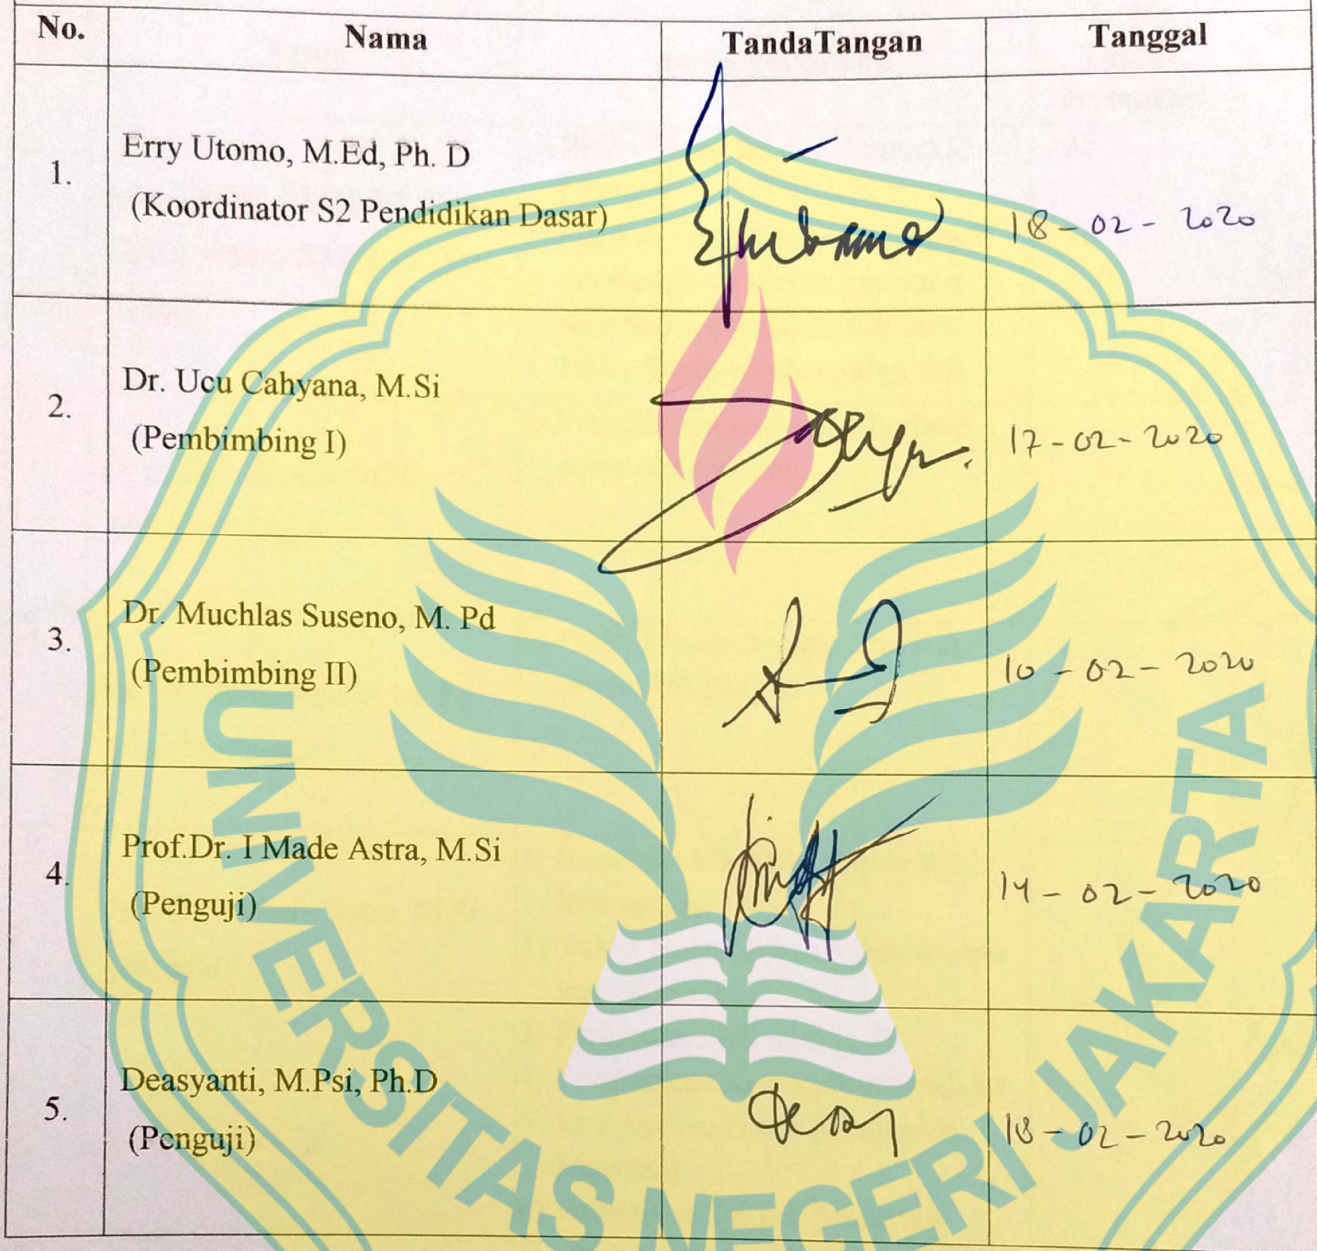 No. Nama TandaTangan Tanggal
1. Erry Utomo, M.Ed, Ph. D
(Koordinator S2 Pendidikan Dasar) 18-02-2020
2. Dr. Ucu Cahyana, M.Si
(Pembimbing I) 17-02-2020
3. Dr. Muchlas Suseno, M. Pd
(Pembimbing II) 10-02-2020
4. Prof.Dr. I Made Astra, M.Si
(Penguji) 14-02-2020
5. Deasyanti, M.Psi, Ph.D
(Penguji) 18-02-2020
UNIVERSITAS NEGERI JAKARTA